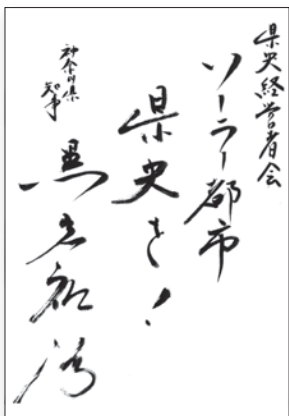 県央経営者会
ソーラー都市
県央を!
神奈川県
知事
黒岩祐治